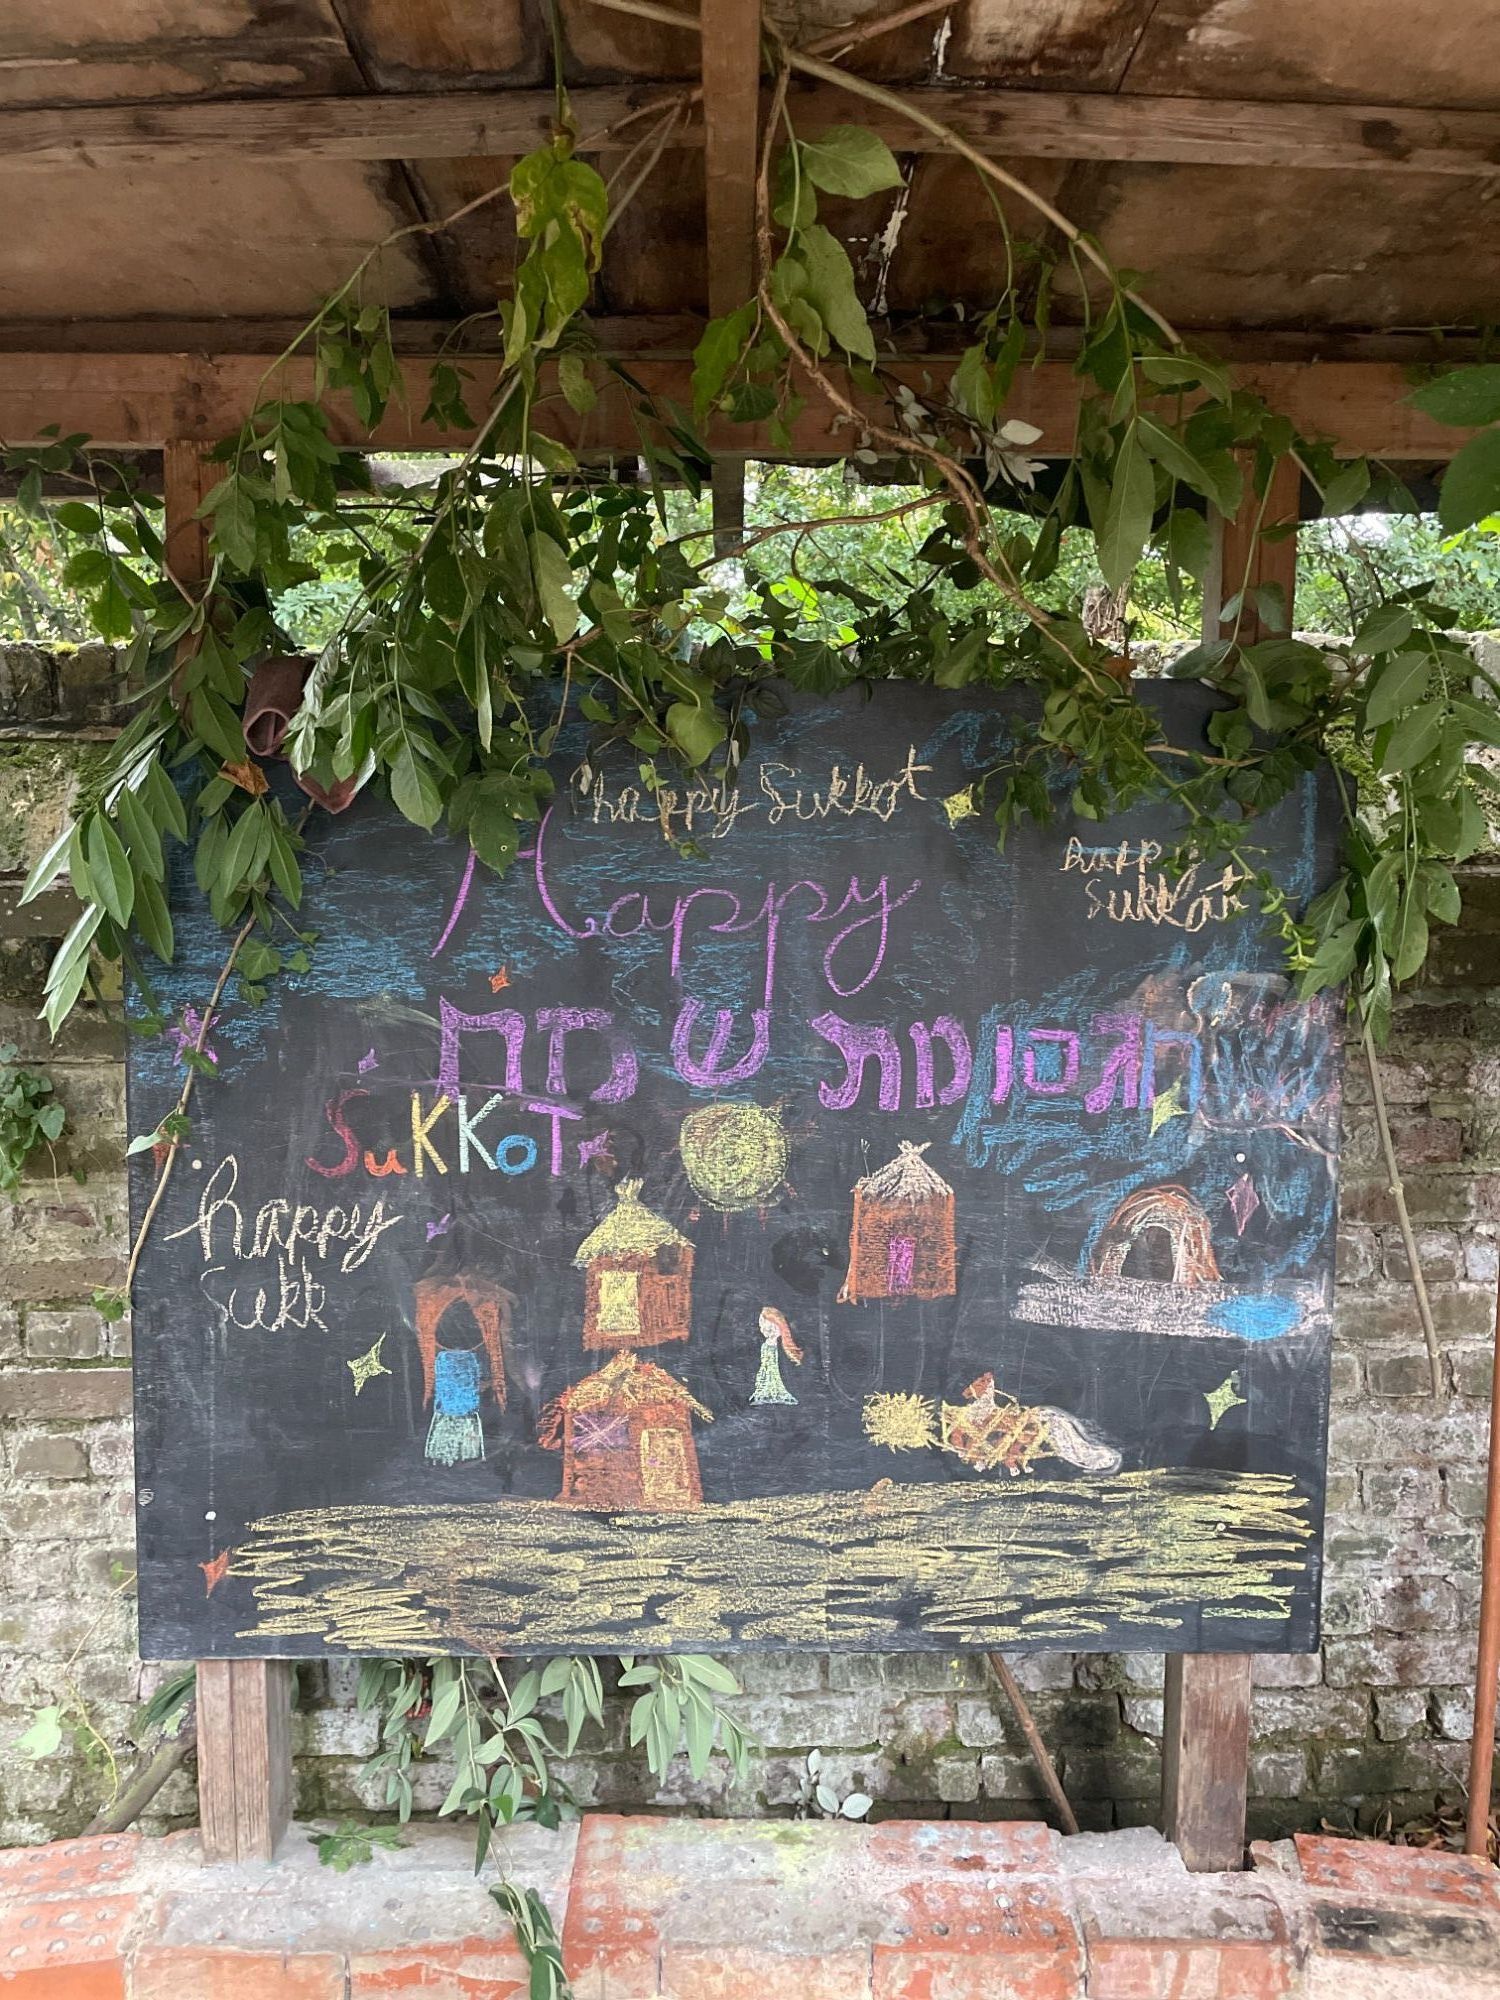 happy Sukkot
happy
Sukkot
Happy
חגסומת שמח
SuKKoT
happy
Sukk